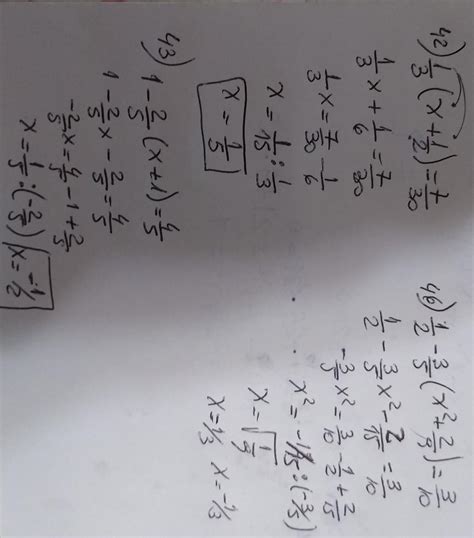 42) 1/3 (x+1/2)=7/30
1/3 x+1/6=7/30
1/3 x=7/30-1/6
x=1/15:1/3
x=1/5
43) 1-2/5 (x+1)=4/5
1-2/5 x-2/5=4/5
-2/5 x=4/5-1+2/5
x=1/5:(-2/5) x=-1/2
46) 1/2-3/5 (x²+2/9)=3/10
1/2-3/5 x²-2/15=3/10
-3/5 x²=3/10-1/2+2/15
x²=-1/15:(-3/5)
x=√1/9
x=1/3 x=-1/3